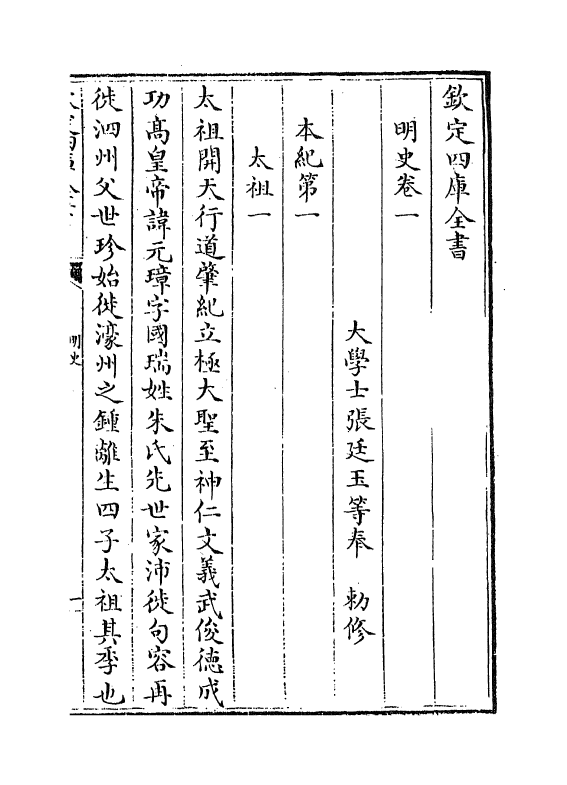 欽定四庫全書
明史卷一
大學士張廷玉等奉　勅修
本紀第一
太祖一
太祖開天行道肇紀立極大聖至神仁文義武俊德成
功髙皇帝諱元璋字國瑞姓朱氏先世家沛徙句容再
徙泗州父世珍始徙濠州之鍾離生四子太祖其季也
明史
一